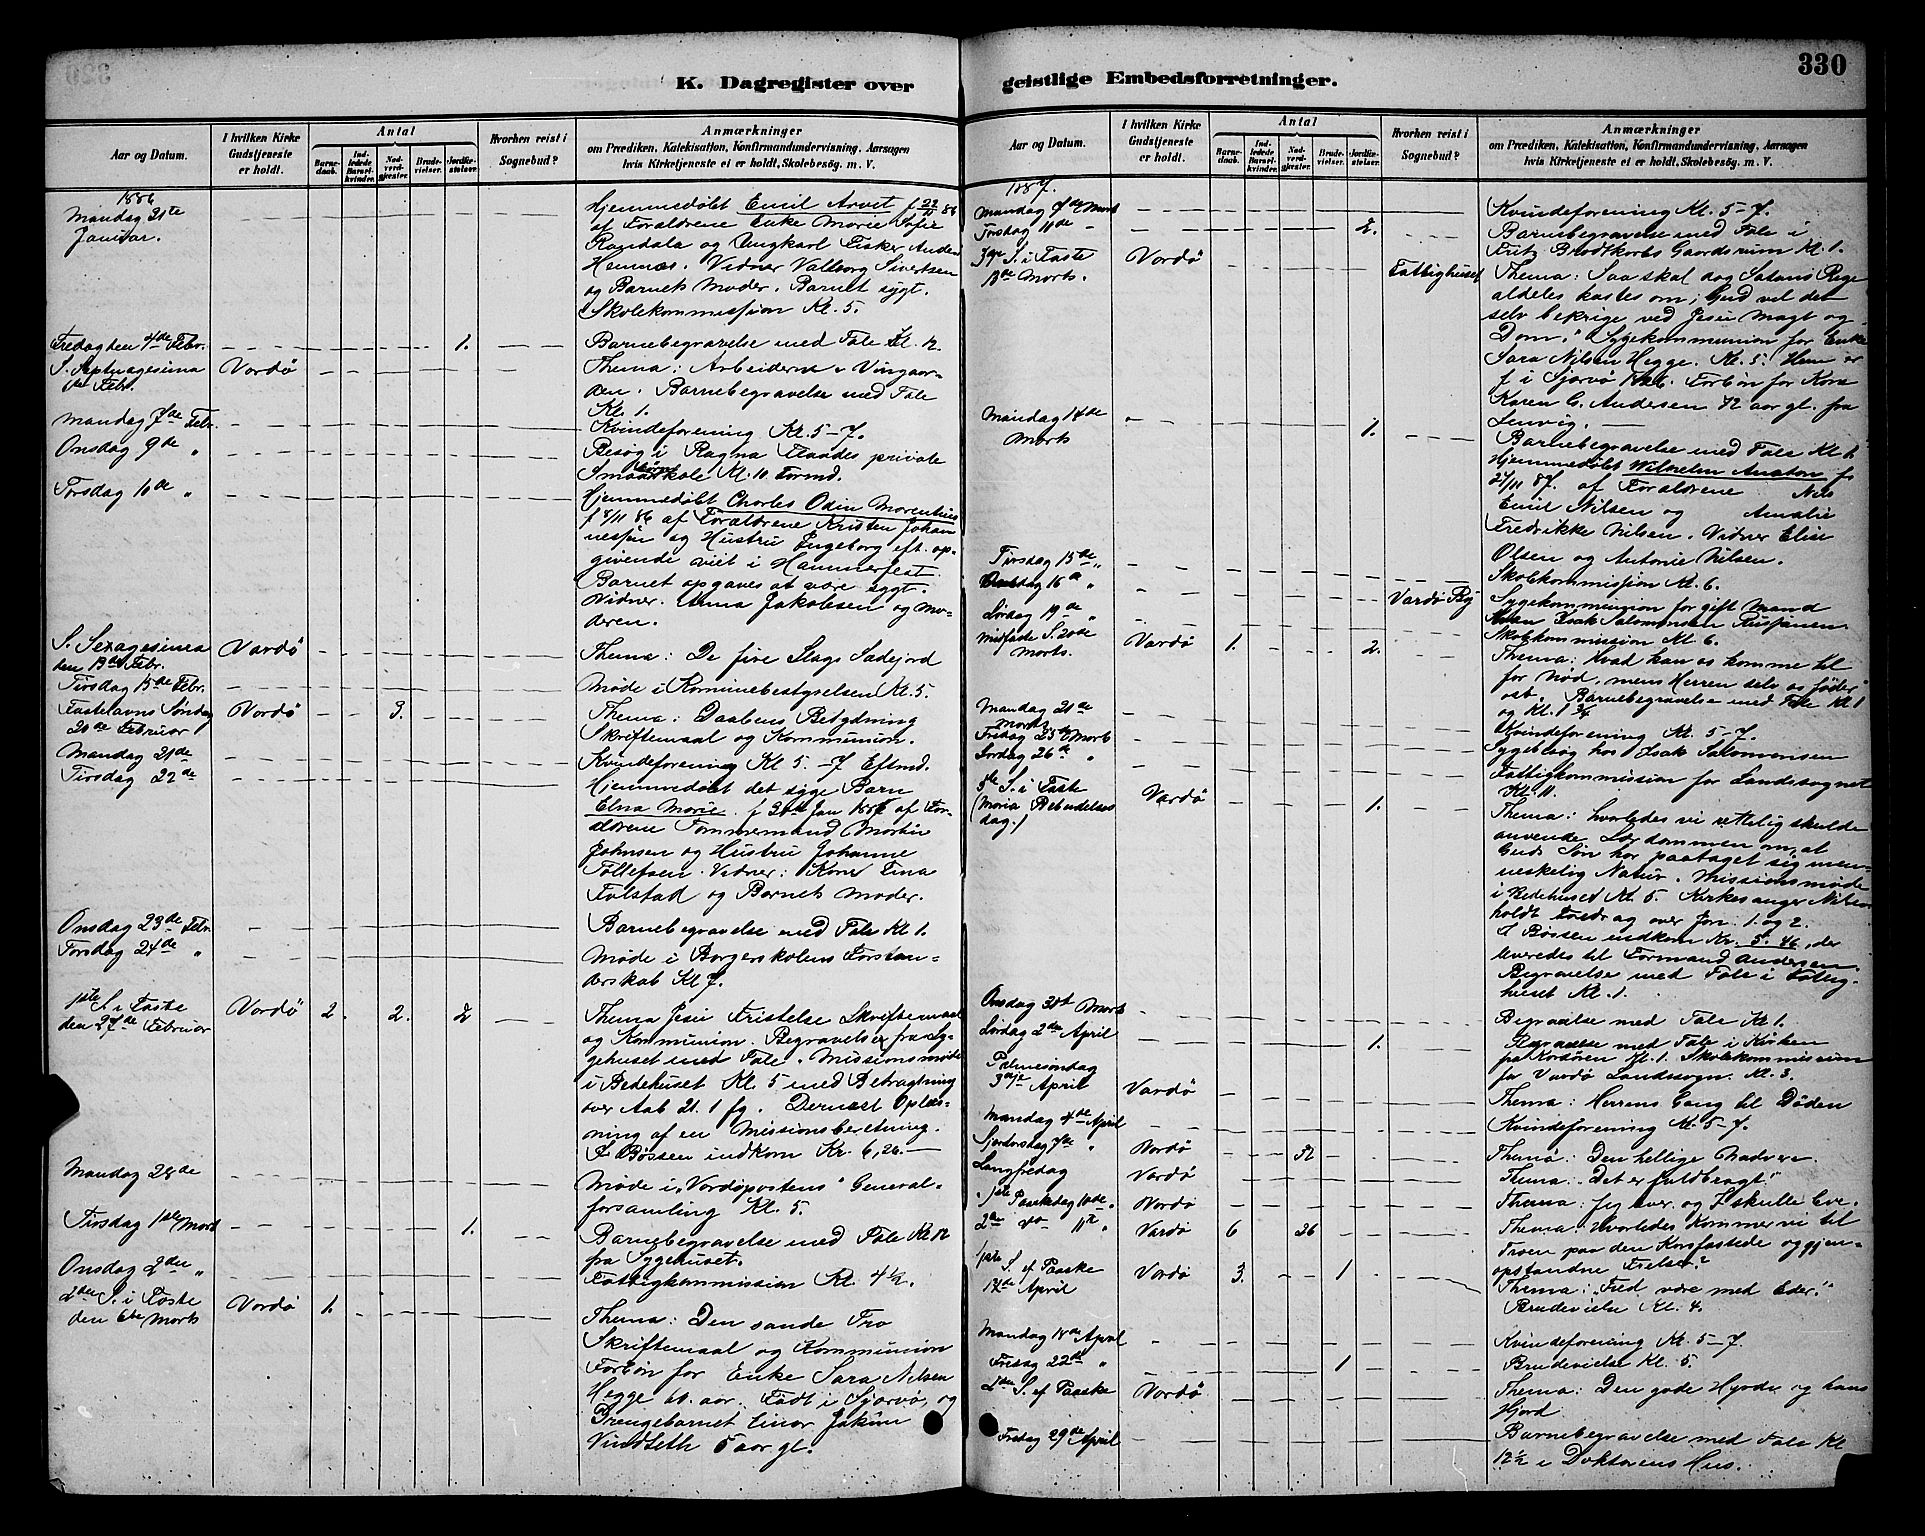 330
K. Dagregister over geistlige Embedsforretninger.
Aar og Datum.
I hvilken Kirke Gudstjeneste er holdt.
Antal
Barnedaab.
Indledede Barselkvinder.
Nadverdgjester.
Brudevielser.
Jordfæstelser.
Hvorhen reist i Sognebud?
Anmærkninger
om Prædiken, Katekisation, Konfirmandundervisning, Aarsagen
hvis Kirketjeneste ei er holdt, Skolebesøg. m. V.
1886
Mandag 31te Hjemmedøbt Emil Arvet f 22/11 86
Januar. af Forældrene Enke Marie Sofie
og Ungkarl Fisker
Vidner Valborg Sivertsen
og Barnets Moder. Barnet sygt.
Skolekommission Kl. 5.
Fredag den 4de Febr. 1. Barnebegravelse med Tale Kl. 12.
S. Septuagesima Vardö Thema: Arbeiderne i Vingaar-
6te Febr. den. Barnebegravelse med Tale
Kl. 1.
Mandag 7de Febr. Kvindeforening Kl. 5-7.
Onsdag 9de " Besøg i Ragna private
Smaabørnskole Kl. 10 Formd.
Torsdag 10de " Hjemmedøbt Charles Odin Morentius
f 8/11 86 af Forældrene Kristen Johan
nessen og Hustru Ingeborg eft. op-
givende viet i Hammerfest.
Barnet opgaves at være sygt.
Vidner. Anna Jakobsen og Mo-
deren.
S. Sexagesima Vardö Thema: De fire Slags Sædejord
den 13de Febr.
Tirsdag 15de Febr. Møde i Kominebestyrelsen Kl. 5.
Fastelavns Søndag Vardö 3. Thema: Daabens Betydning
20de Februar Skriftemaal og Kommunion.
Mandag 21de Kvindeforening Kl 5.-7 Eftmd.
Tirsdag 22de Hjemmedøbt det syge Barn
Elna Marie. f 30te Jan 1887 af For-
ældrene Tømmermand Martin
Johnsen og Hustru Johanne
Tollefsen. Vidner: Kone Tina
Falstad og Barnets Moder.
Onsdag 23de Febr. Barnebegravelse med Tale Kl 1.
Torsdag 24de " Møde i Borgerskolens Forstan-
derskab Kl 7.
1ste S. i Faste Vardö 2. 2. 2 Thema Jesu Fristelse Skriftemaal
den 27de Februar og Kommunion. Begravelser fra Sy-
gehuset med Tale. Missionsmøde
i Bedehuset Kl. 5 med Betragtning
over Aab 21. 1 fg. Dernæst Oplæs-
ning af en Missionsberetning.
I Bøssen indkom Kr. 6,26.
Mandag 28de Møde i "Vardöpostens" General-
forsamling Kl. 5.
Tirsdag 1ste Marts 1. Barnebegravelse med Tale Kl 12
fra Sygehuset.
Onsdag 2den " Fattigkommission Kl. 4½.
2den S. i Faste Vardö 1. Thema: Den sande Tro
den 6te Marts Skriftemaal og Kommunion
Forbøn for Enke Sara Nilsen
Hegge 60. aar. Født i Sjørvö, og
Drengebarnet Einar Jakim
Vindseth 5 aar gl.
1887.
Mandag 7de Marts Kvindeforening Kl. 5-7.
Torsdag 11de " 2. Barnebegravelse med Tale i
Fritz Brodtkorbs Gaardsrum Kl. 1.
3die S. i Faste Vardö Fattighuset Thema: Saa skal dog Satans Rige
13de Marts. aldeles kastes om; Gud vil det
selv bekrige ved Jesu Magt og
Dom". Sygekommunion for Enke
Sara Nilsen Hegge. Kl. 5. Hun er
f i Sjørvö 1826. Forbøn for Kone
Karen C. Andersen 82 aar gl. fra
Lenvig.
Mandag 14de Marts 1. Barnebegravelse med Tale Kl 1.
Hjemmedøbt Wilhelm Anton f.
24/11 87. af Forældrene Nils
Emil Nilsen og Amalie
Fredrikke Nilsen. Vidner Elise
Olsen og Antonie Nilsen.
Tirsdag 15de " Skolekommission Kl. 6.
Onsdag 16de " Vardö By Sygekommunion for gift Mand
Isak Salomonsen
Lørdag 19de " Skolekommission Kl 6.
Midfaste S. 20de Marts. Vardö 1. 2. Thema: Hvad kan os komme til
for Nød, mens Herren selv os føder
ost. Barnebegravelse med Tale Kl 1
og Kl. 1¾
Mandag 21de Marts Kvindeforening Kl. 5-7.
Fredag 25de Marts Sygebesøg hos Isak Salomonsen
Lørdag 26de " Fattigkommission for Landsognet
Kl. 11.
5te S. i Faste Vardö 1. Thema: hvorledes vi rettelig skulde
(Maria Bebudelses anvende Lærdommen om, at
dag.) Guds Søn har paataget sig men-
neskelig Natur. Missionsmøde
i Bedehuset Kl. 5. Kirkesanger Nilsen
holdt Foredrag over Jon. 1. og 2.
I Bøssen indkom Kr. 5. 46, der
leveredes til Formand Andersen.
Begravelse med Tale i Fattig-
huset Kl. 1.
Onsdag 30te Marts Begravelse med Tale Kl 1.
Lørdag 2den April 1. Begravelse med Tale i Kirken
Kl. 1. Skolekommission
for Vardö Landssogn. Kl. 3.
Palmesøndag 3die April Vardö Thema: Herrens Gang til Døden
Mandag 4de April Kvindeforening Kl. 5-7.
Skjærtorsdag 7de " Vardö 32 Thema: Den hellige Nadvere.
Langfredag Vardö Thema: "Det er fuldbragt."
1ste Paaskedag 10de " Vardö Thema: Jeg lever og I skulle leve.
2den do 11te " Vardö 6 26 Thema: Hvorledes kommer vi til
Troen paa den Korsfæstede og gjen-
opstandne Frelser?
1ste S. ef Paaske Vardö 3. 1 Thema: "Fred være med Eder!"
17de April Brudevielse Kl. 4.
Mandag 18de April Kvindeforening Kl. 5-7.
Fredag 22de " 1 Brudevielse Kl. 5.
2den S. ef Paaske Vardö Thema: Den gode Hyrde og hans
Hjord
Fredag 29de April Barnebegravelse med Tale Kl
12½ i Doktorens Hus.